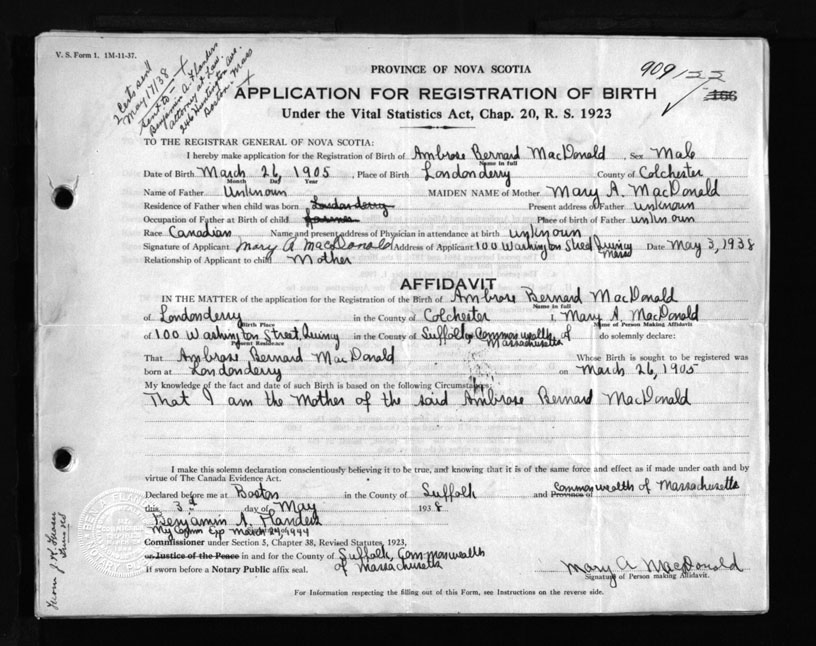 V. S. Form 1. 1M-11-37.
2 Certs sent
May 17/38
sent to
Benjamin A. Flanders
attorney at Law
246 Huntington Ave.
Boston - Mass
909 / 55
166
PROVINCE OF NOVA SCOTIA
APPLICATION FOR REGISTRATION OF BIRTH
Under the Vital Statistics Act, Chap. 20, R. S. 1923
TO THE REGISTRAR GENERAL OF NOVA SCOTIA:
I hereby make application for the Registration of Birth of Ambrose Bernard MacDonald, Sex Male
Name in full
Date of Birth March 26, 1905, Place of Birth Londonderry County of Colchester
Month Day Year
Name of Father Unknown MAIDEN NAME of Mother Mary A. MacDonald
Residence of Father when child was born Londonderry Present address of Father unknown
Occupation of Father at Birth of child farmer Place of birth of Father unknown
Race Canadian Name and present address of Physician in attendance at birth unknown
Signature of Applicant Mary A MacDonald Address of Applicant 100 Washington Street Quincy Mass Date May 3, 1938
Relationship of Applicant to child Mother
AFFIDAVIT
IN THE MATTER of the application for the Registration of the Birth of Ambrose Bernard MacDonald
Name in full
of Londonderry in the County of Colchester I, Mary A. MacDonald
Birth Place Name of Person Making Affidavit
of 100 Washington Street, Quincy in the County of Suffolk Commonwealth of Massachusetts do solemnly declare:
Present Residence
That Ambrose Bernard MacDonald Whose Birth is sought to be registered was
born at Londonderry on March 26, 1905
My knowledge of the fact and date of such Birth is based on the following Circumstances:
That I am the Mother of the said Ambrose Bernard MacDonald
I make this solemn declaration conscientiously believing it to be true, and knowing that it is of the same force and effect as if made under oath and by
virtue of The Canada Evidence Act.
Declared before me at Boston in the County of Suffolk and Province of Commonwealth of Massachusetts
this 3rd day of May 1938
Benjamin A. Flanders
My Comm Exp March 24, 1944
Commissioner under Section 5, Chapter 38, Revised Statutes, 1923,
or Justice of the Peace in and for the County of Suffolk, Commonwealth
of Massachusetts
If sworn before a Notary Public affix seal.
Mary A MacDonald
Signature of Person making Affidavit.
For Information respecting the filling out of this Form, see Instructions on the reverse side.